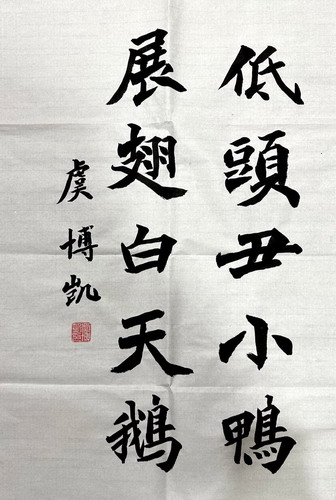 低頭丑小鴨
展翅白天鵝
虞博凱